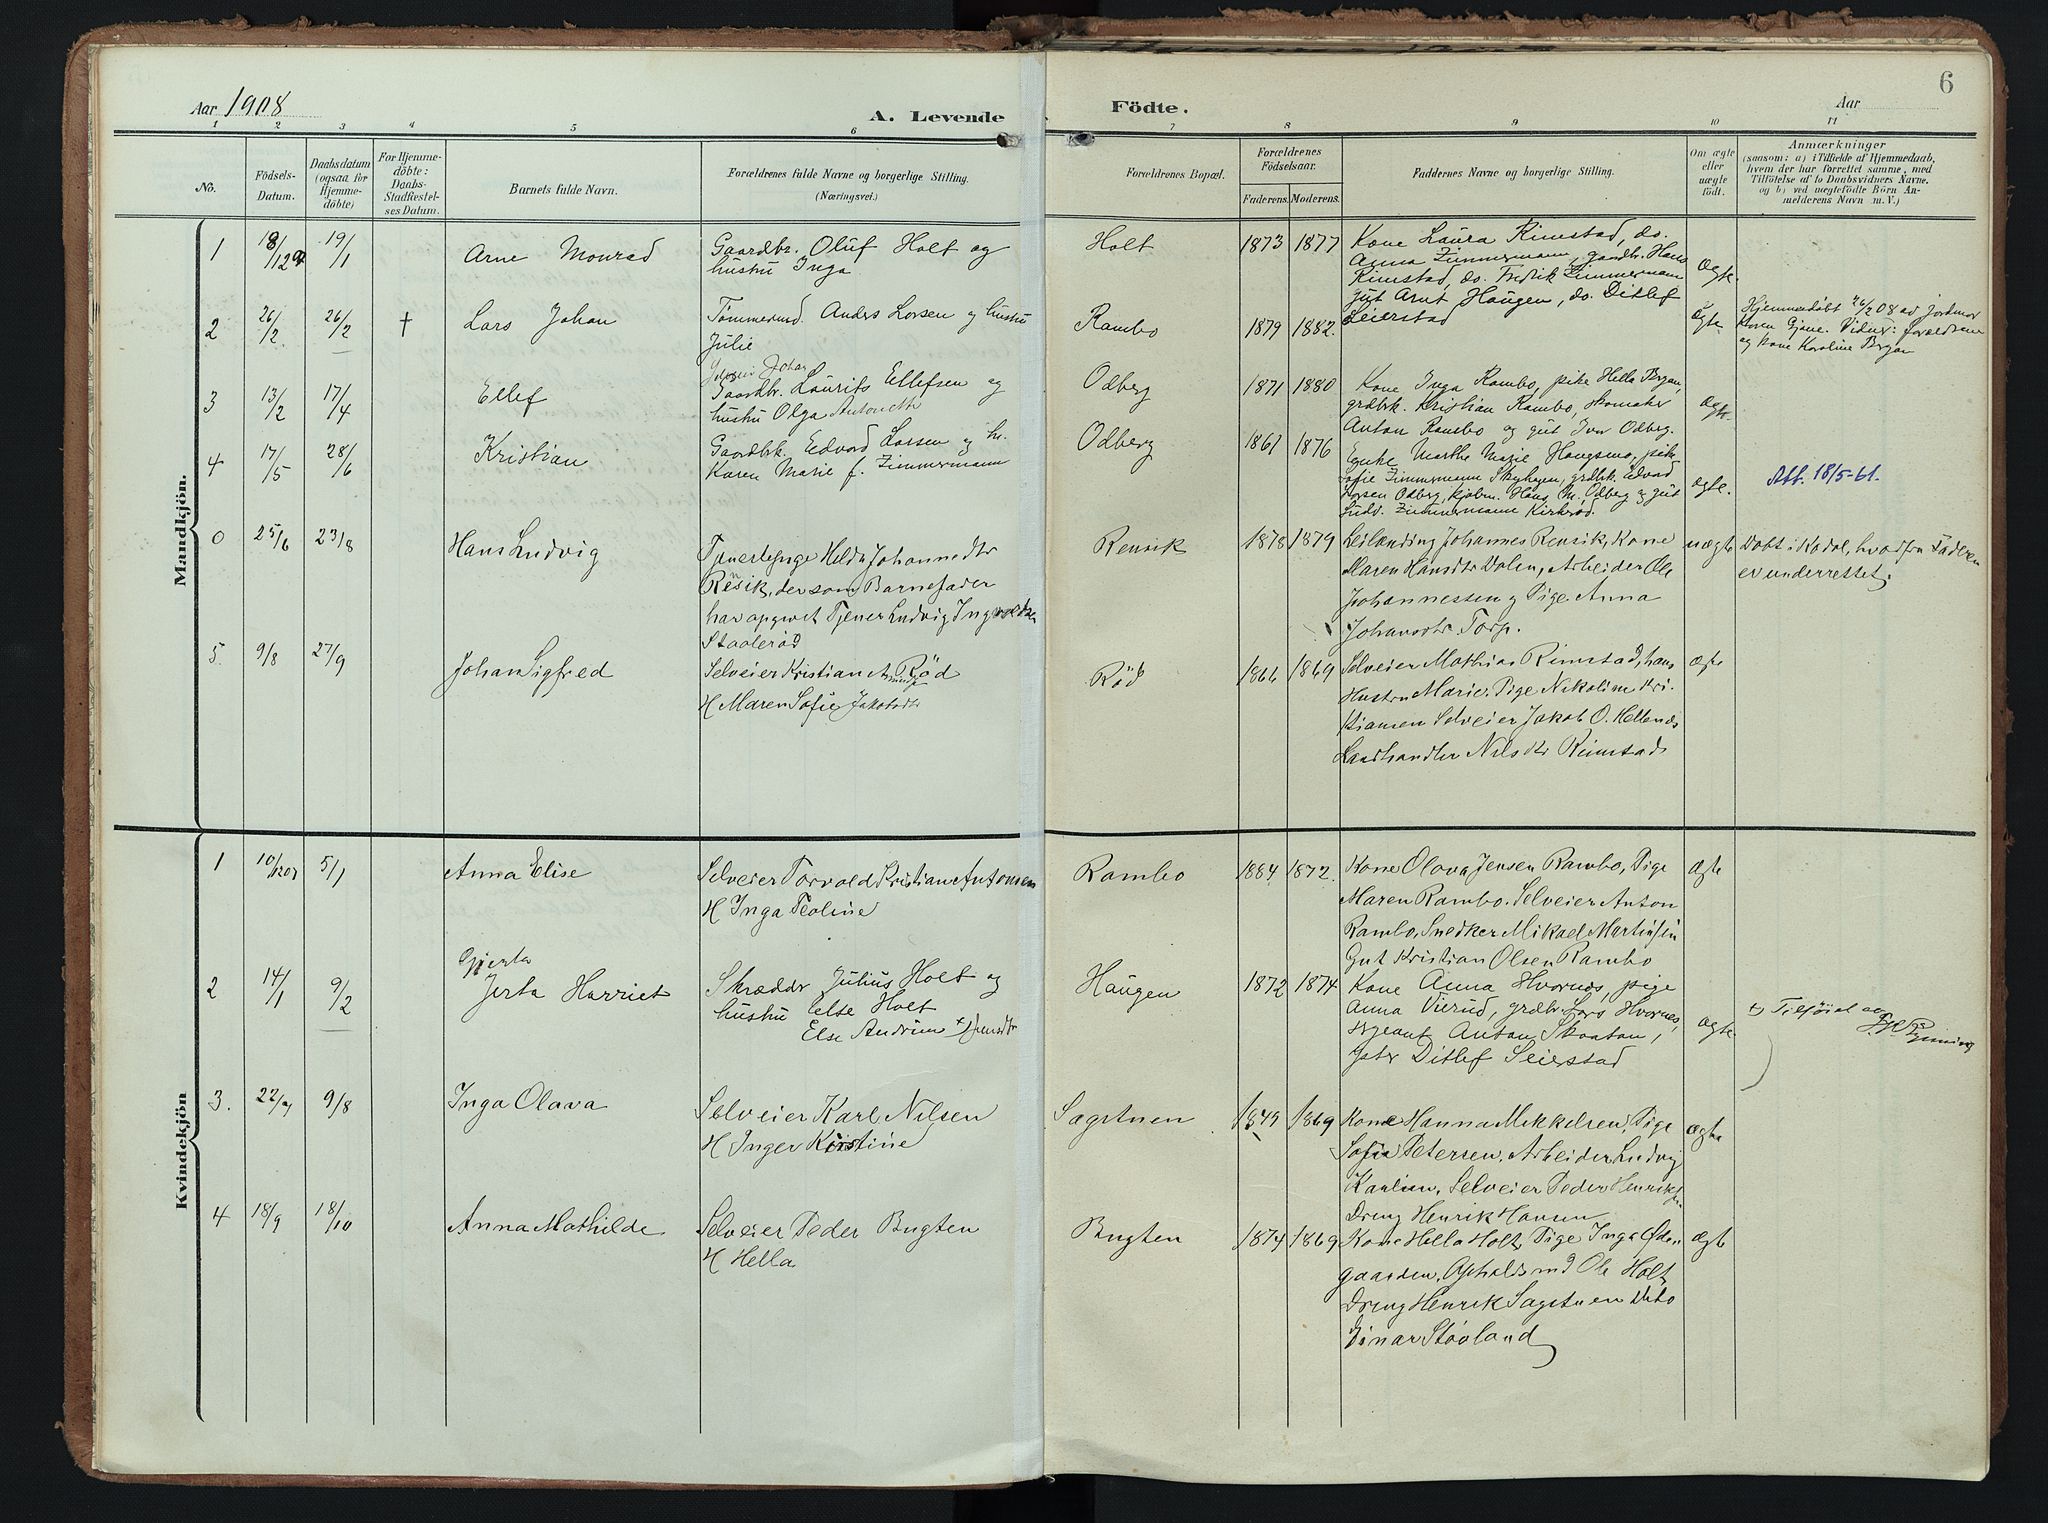 6
Aar 1908
A. Levende
Födte.
Aar
1 2 3 4 5 6 7 8 9 10 11
No.
Födsels-
Datum.
Daabsdatum
(ogsaa for
Hjemme-
döbte)
For Hjemme-
döbte:
Daabs-
Stadfæstel-
ses Datum.
Barnets fulde Navn.
Forældrenes fulde Navne og borgerlige Stilling.
(Næringsvei.)
Forældrenes Bopæl.
Forældrenes
Födselsaar.
Faderens. Moderens.
Faddernes Navne og borgerlige Stilling.
Om ægte
eller
uægte
födt.
Anmærkninger
(saasom: a) i Tilfælde af Hjemmedaab,
hvem der har forrettet samme, med
Tilföielse af to Daabsvidners Navne.
og b) ved uægtefödte Börn An-
melderens Navn m. V.)
Mandkjön.
1
19/1
Arne Monrad
Gaardbr. Oluf Holt og
hustru Inga
Holt
1873 1877
Kone Laura Rimstad, do.
Anna Zimmermann, gardbr. Hans
Rimstad, do. Fredrik Zimmermann
gut Arnt Haugen, do. Ditlef
Seierstad
ægte.
2
26/2. 26/2
†
Lars Johan
Tømmermd. Anders Larsen og hustru
Julie
Rambo
1879 1882.
ægte
Hjemmedøbt 26/2 08 av jordmor
Karen Gjone. Vidner: forældrene
og kone Karoline Bryan
3
13/2 17/4
Ellef
Johan
Gaardbr. Laurits Ellefsen og
hustru Olga Antonette
Odberg
1871 1880
Kone Inga Rambo, pike Hella Bryan,
grdbrk. Kristian Rambo, skomaker
Anton Rambo og gut Ivar Odberg.
ægte.
4
17/5 28/6
Kristian
Gaardbrk. Edvard Larsen og h.
Karen Marie f. Zimmermann
Odberg
1861 1876
Enke Marthe Marie Haugsmo, pike
Sofie Zimmermann Skyhagen, grdbrk. Edvard
Larsen Odberg, kjøbm. Hans M. Odberg og gut
Ludv. Zimmermann Kirkerød.
ægte.
Att. 18/5-61.
0
25/6 23/8
Hans Ludvig
Tjenestepige Helda Johannesdtr
Resik, der som Barnefader
har opgivet Tjener Ludvig Ingvaldsen
Staalerød
Rensik
1878 1879
Leilænding Johannes Rensik, Kone
Maren Hansdtr Dalen, Arbeider Ole
Johannessen og Pige Anna
Johansdtr. Torp.
uægte
Døbt i Kodal, hvorfra Faderen
er underrettet.
5.
9/8 27/9
Johan Sigfred
Selveier Kristian Rød
H Maren Sofie Jakobsdtr
Rød
1866 1869
Selveier Mathias Rimstad, hans
Hustru Marie. Pige Nikoline Kri-
stiansen Selveier Jakob O. Hellenæs
Landhandler Nils Rimstad
ægte
Kvindekjön
1
10/1207 5/1
Anna Elise
Selveier Torvald Kristian Antonsen
H Inga Teoline
Rambo
1884 1872.
Kone Olava Jensen Rambo, Pige
Maren Rambo. Selveier Anton
Rambo, Snedker Mikael Martinsen
Gut Kristian Olsen Rambo
ægte
2
14/1 9/2
Gjerta
Jerta Harriet
Skrædder Julius Holt og
hustru Else Holt
Else Andrine +
Haugen
1872 1874
Kone Anna Hvarnes, pige
Anna Vierød, grdbr Lars Hvarnes,
sergeant Anton Skaatan,
Ditlef Seierstad
ægte
+) Tilføiet av
3.
9/8
Inga Olava
Selveier Karl Nilsen
H Inger Kirstine
Sagstuen
1849 1869
Kone Hanna Mikkelsen, Pige
Sofie Petersen, Arbeider Ludvig
Karlsen, Selveier Peder Henriksen
Dreng Henrik Hansen
ægte
4
18/9 18/10
Anna Mathilde
Selveier Peder Bugten
H Hella
Bugten
1874 1869
Kone Hella Holt, Pige Inga Øde-
gaarden, Opholdsmd Ole Holt
Dreng Henrik Sagstuen Dito
Einar Støvland
ægte